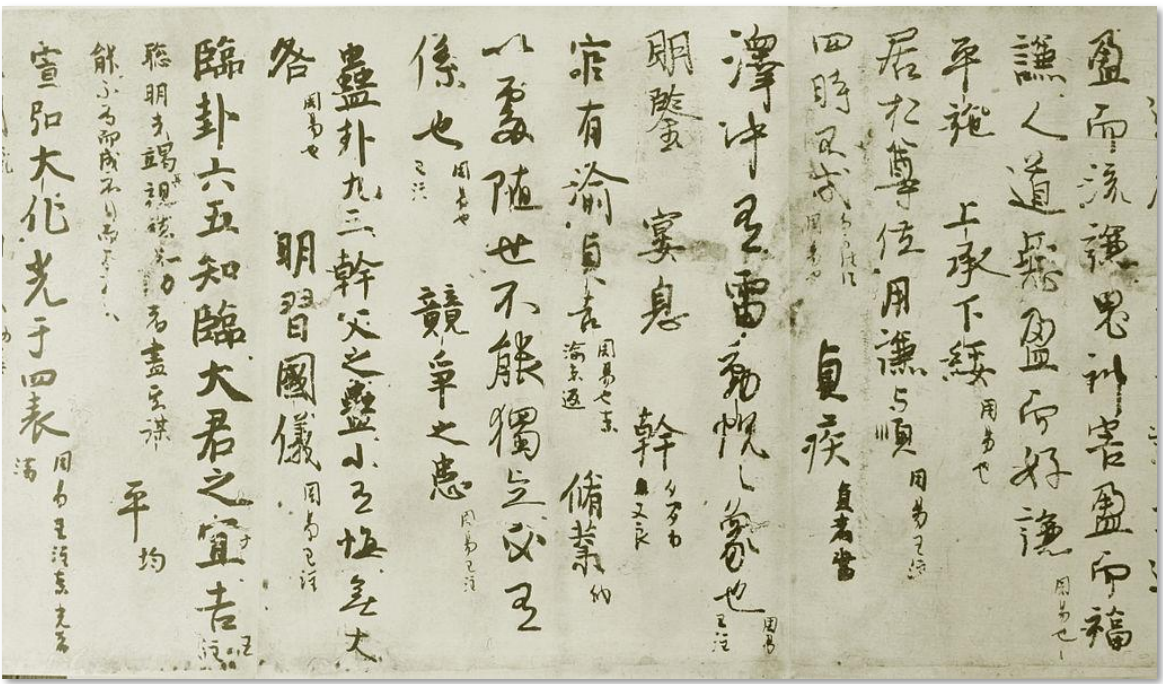 盈而流謙鬼神害盈而福
謙人道惡盈而好謙 周易也
平施 上承下綏 周易也
居於尊位用謙與順 周易王注
四時不忒 周易也 貞疾
澤中有雷動悅之象也 周易王注
明鑒 宴息 幹
官有渝貞吉 周易也 渝 脩業
以處隨世不能獨立必有
係也 周易也王注 競爭之患 周易王注
蠱卦九三幹父之蠱小有悔無大
咎 周易也 明習國儀 周易王注
臨卦六五知臨大君之宜吉 王注
聰明者竭視聽知力者盡其謀
能不為而成不行而 平均
宣弘大化光于四表 周易王注